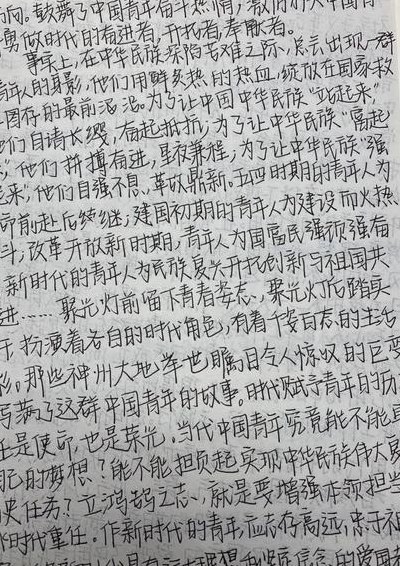 向。鼓舞了中国青年奋斗热情，教你们从中国青
勇做时代的奋进者，开拓者，奉献者。
事实上，在中华民族深陷苦难之际，总会出现一群
青年人的身影，他们用鲜红热的热血，绽放在国家救
亡图存的最前沿。为了让中国中华民族"站起来"
他们自请长缨，奋起抵抗；为了让中华民族"富起
来"，他们拼搏奋进，星夜兼程；为了让中华民族"强
起来"，他们自强不息，革故鼎新。五四时期的青年人为
前赴后继；建国初期的青年人为建设而火热
斗；改革开放新时期，青年人为国富民强顽强奋
新时代的青年人为民族复兴开拓创新与祖国共
进……聚光灯前留下青春姿态，聚光灯后踏实
干，扮演着各自的时代角色，有着千姿百态的生活
彩。那些神州大地举世瞩目令人惊叹的巨变
写满了这群中国青年的故事。时代赋予青年的历
任是使命，也是荣光。当代中国青年究竟能不能具
自己的梦想？能不能担负起实现中华民族伟大复
史任务？立鸿鹄之志，就是要增强本领担当
时代重任。作新时代的青年，应志存高远，忠于祖
的爱国者